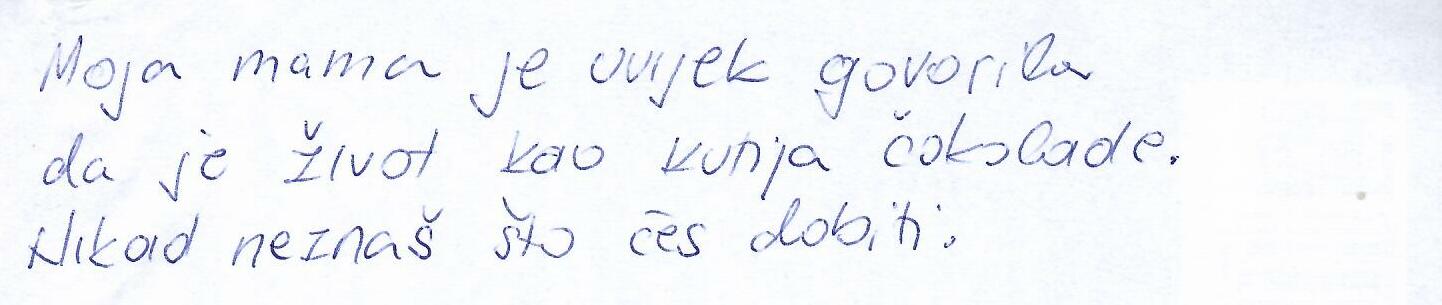 Moja mama je uvijek govorila
da je život kao kutija čokolade.
Nikad neznaš što ćes dobiti.